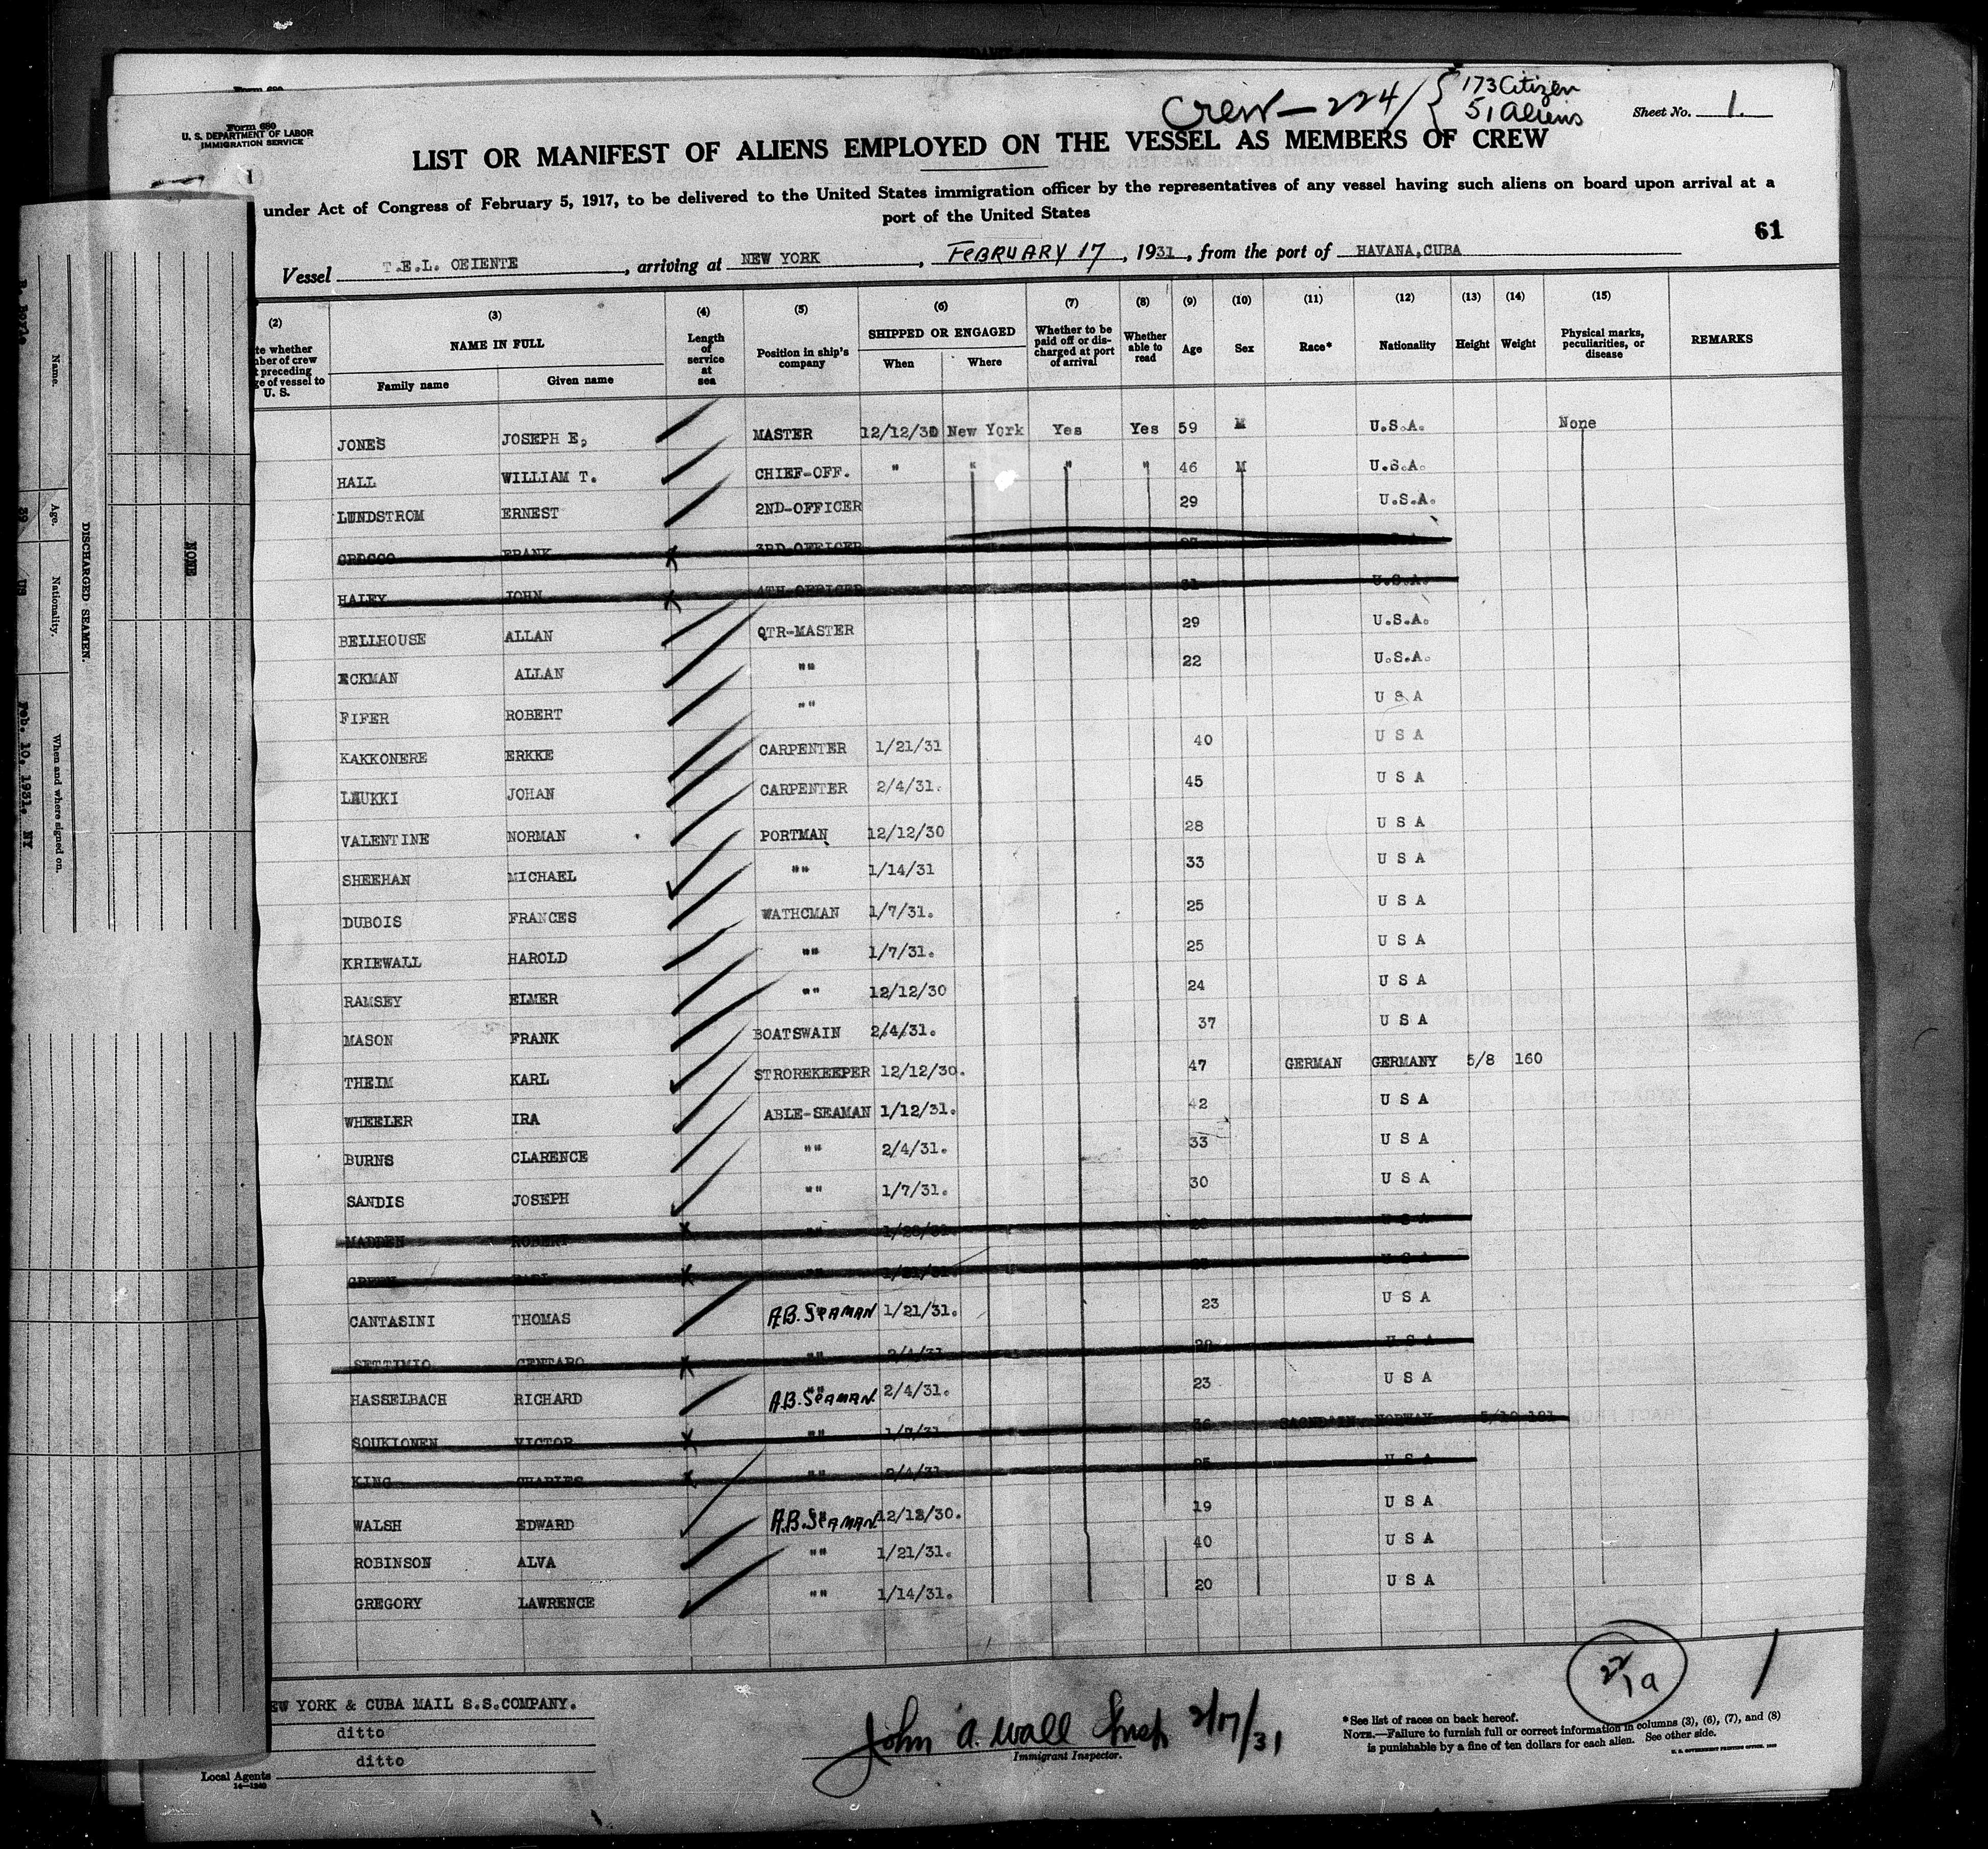 Crew - 224 { 173 Citizen
51 Aliens
Form 680
U. S. DEPARTMENT OF LABOR
IMMIGRATION SERVICE
Sheet No. 1.
LIST OR MANIFEST OF ALIENS EMPLOYED ON THE VESSEL AS MEMBERS OF CREW
1
under Act of Congress of February 5, 1917, to be delivered to the United States immigration officer by the representatives of any vessel having such aliens on board upon arrival at a
port of the United States
61
Vessel T.E.L. OEIENTE, arriving at NEW YORK, FEBRUARY 17, 1931, from the port of HAVANA,CUBA
(2) (3) (4) (5) (6) (7) (8) (9) (10) (11) (12) (13) (14) (15)
te whether
ber of crew
preceding
ge of vessel to
U. S.
NAME IN FULL
Family name Given name
Length of service at sea
Position in ship's company
SHIPPED OR ENGAGED
When Where
Whether to be paid off or discharged at port of arrival
Whether able to read
Age
Sex
Race*
Nationality
Height
Weight
Physical marks, peculiarities, or disease
REMARKS
JONES JOSEPH E, MASTER 12/12/30 New York Yes Yes 59 M U.S.A. None
HALL WILLIAM T. CHIEF-OFF. " " " " 46 M U.S.A.
LUNDSTROM ERNEST 2ND-OFFICER 29 U.S.A.
FRANK 3RD-OFFICER
HALEY JOHN 4TH-OFFICER 31 U.S.A.
BELLHOUSE ALLAN QTR-MASTER 29 U.S.A.
ECKMAN ALLAN "" 22 U.S.A.
FIFER ROBERT "" U S A
KAKKONERE ERKKE CARPENTER 1/21/31 40 U S A
LAUKKI JOHAN CARPENTER 2/4/31. 45 U S A
VALENTINE NORMAN PORTMAN 12/12/30 28 U S A
SHEEHAN MICHAEL "" 1/14/31 33 U S A
DUBOIS FRANCES WATHCMAN 1/7/31. 25 U S A
KRIEWALL HAROLD "" 1/7/31. 25 U S A
RAMSEY ELMER "" 12/12/30 24 U S A
MASON FRANK BOATSWAIN 2/4/31. 37 U S A
THEIM KARL STROREKEEPER 12/12/30. 47 GERMAN GERMANY 5/8 160
WHEELER IRA ABLE-SEAMAN 1/12/31. 42 U S A
BURNS CLARENCE "" 2/4/31. 33 U S A
SANDIS JOSEPH "" 1/7/31. 30 U S A
MADDEN ROBERT "" U S A
"" 1/21/31. U S A
CANTASINI THOMAS A.B. SEAMAN 1/21/31. 23 U S A
SETTIMIO GENTARO "" 2/4/31 U S A
HASSELBACH RICHARD A.B. SEAMAN 2/4/31. 23 U S A
SOUKIONEN VICTOR "" 1/7/31 36 NORWAY 5/10 181
KING CHARLES "" 2/4/31 25 U S A
WALSH EDWARD A.B. SEAMAN 12/12/30. 19 U S A
ROBINSON ALVA "" 1/21/31. 40 U S A
GREGORY LAWRENCE "" 1/14/31. 20 U S A
22
1a
EW YORK & CUBA MAIL S.S.COMPANY.
ditto
ditto
Local Agents
John A. Wall Insp 2/17/31
Immigrant Inspector.
*See list of races on back hereof.
NOTE.—Failure to furnish full or correct information in columns (3), (6), (7), and (8)
is punishable by a fine of ten dollars for each alien. See other side.
DISCHARGED SEAMEN.
Name. Age. Nationality. When and where signed on.
39 US Feb. 10, 1931. NY
NONE